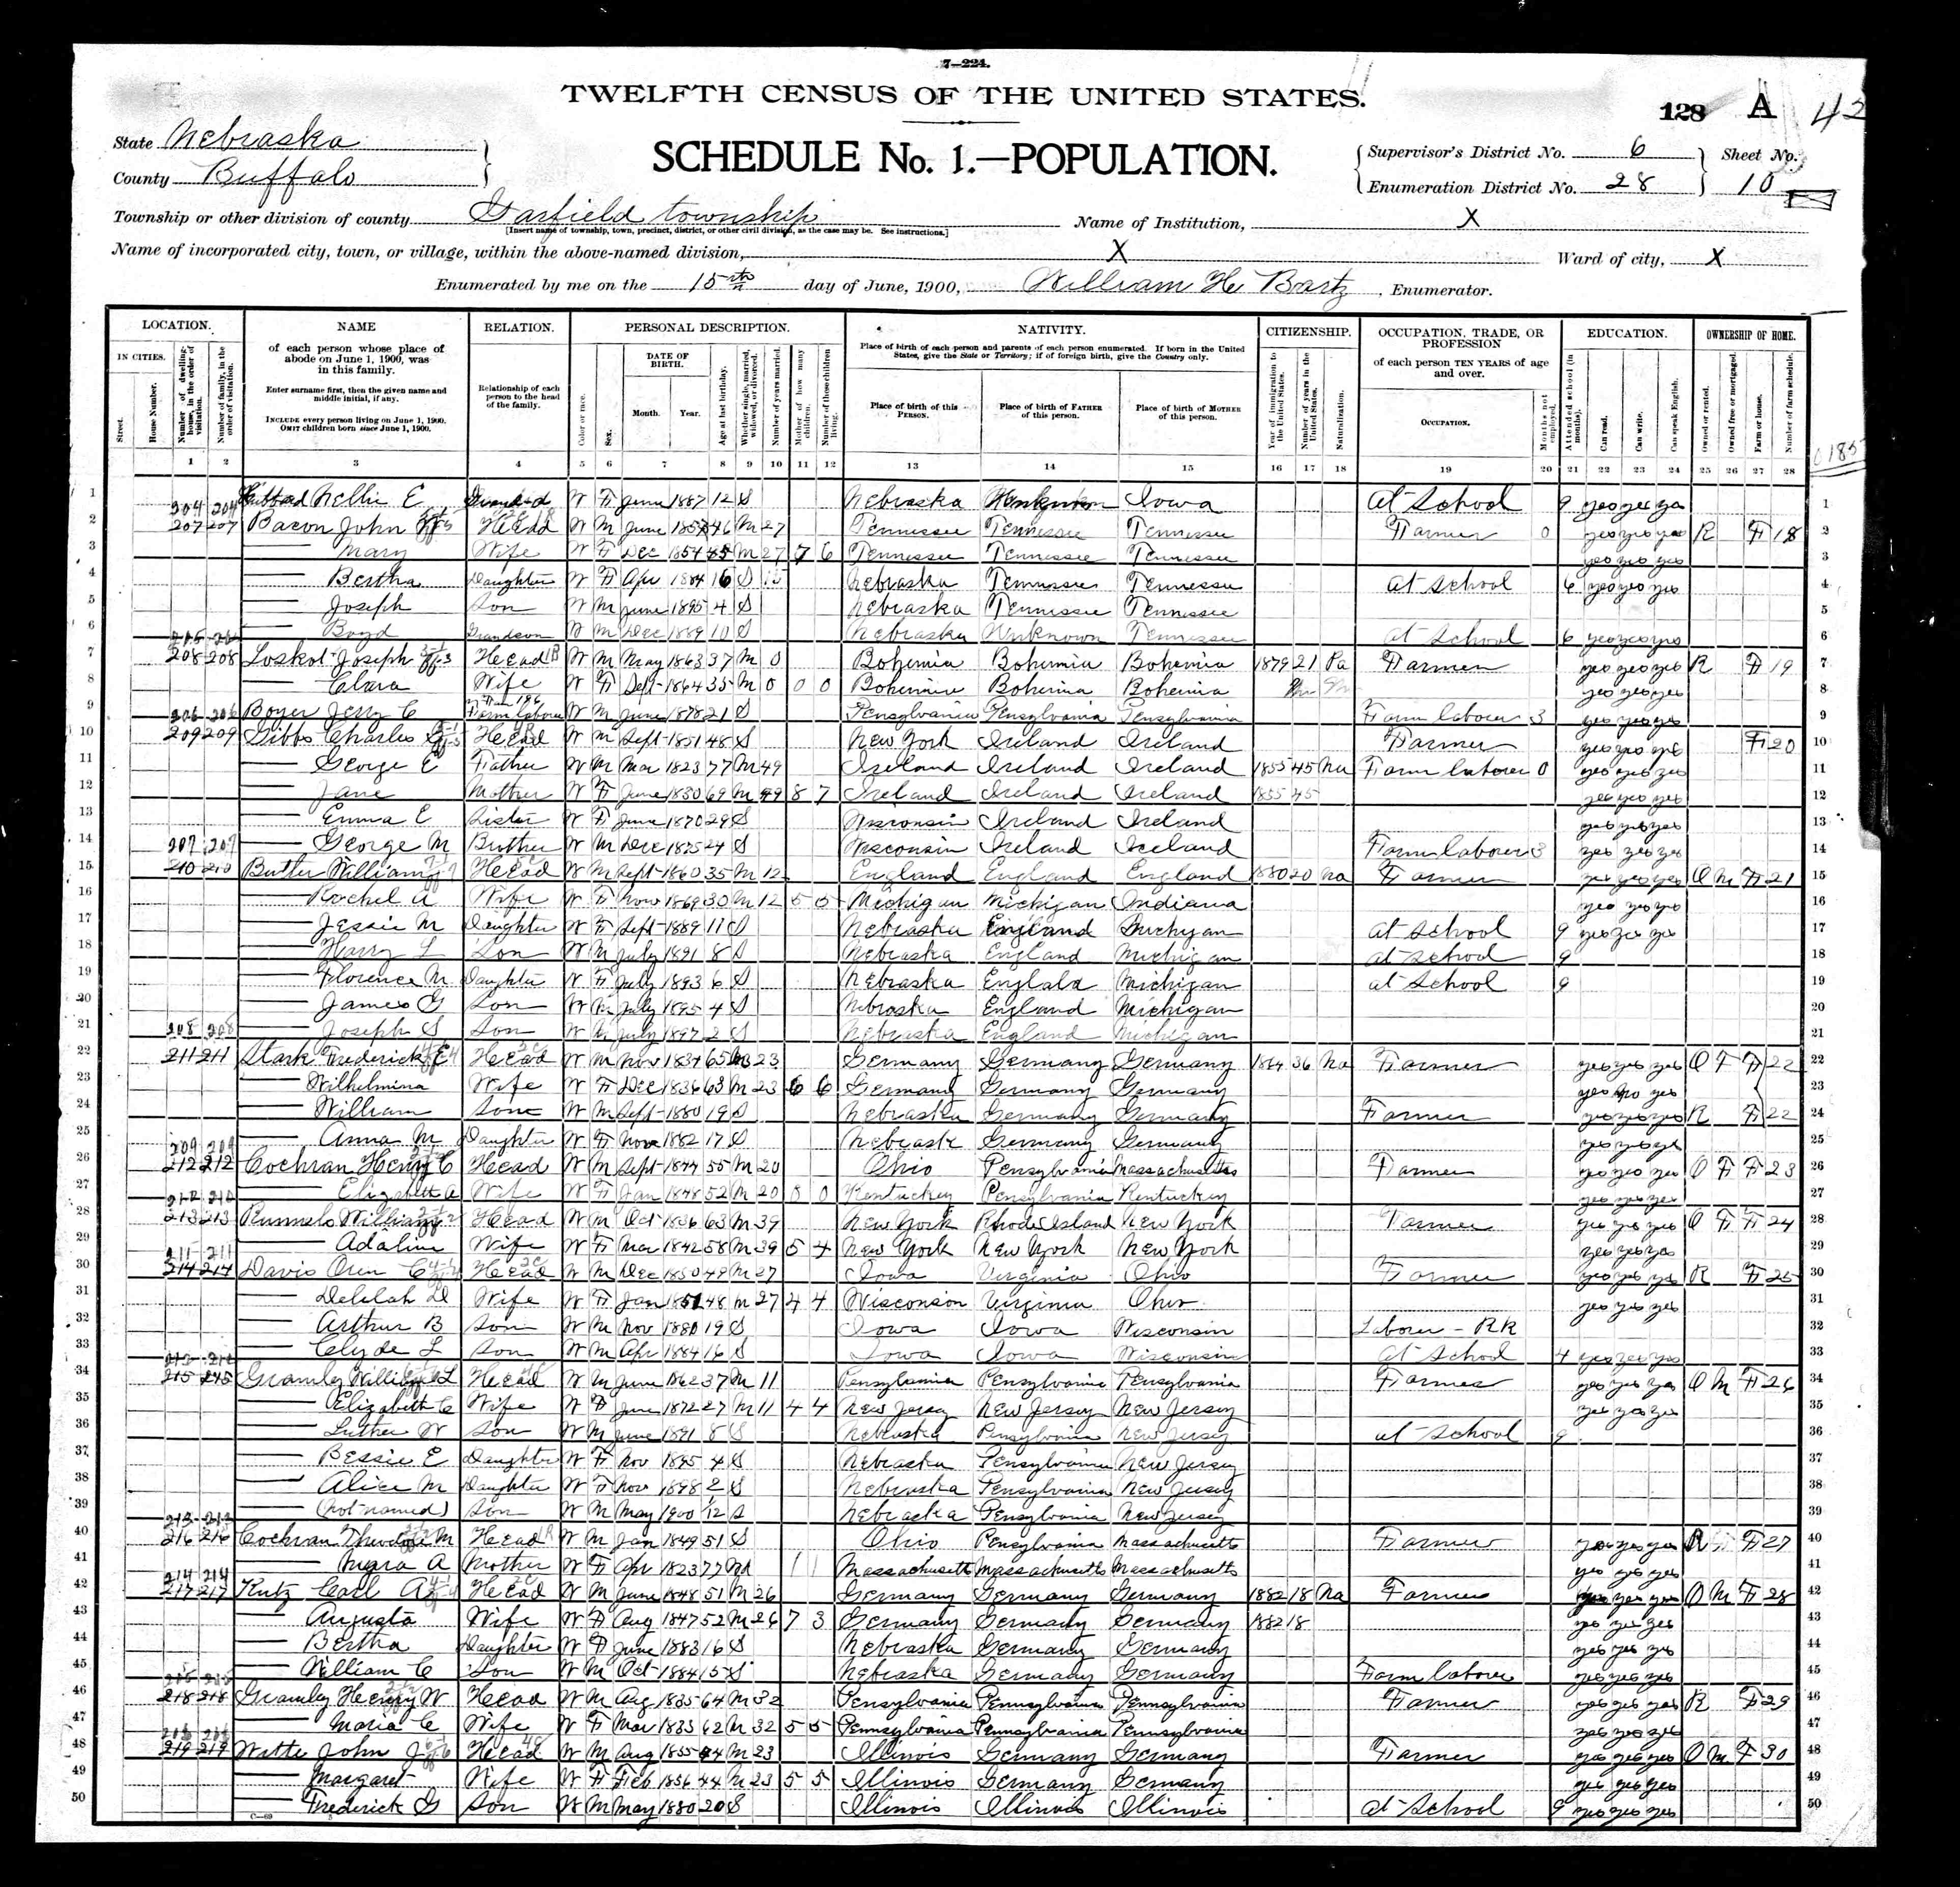 7—224.
TWELFTH CENSUS OF THE UNITED STATES.
128 A 42
State Nebraska
County Buffalo
SCHEDULE No. 1.—POPULATION.
Supervisor's District No. 6
Enumeration District No. 28
Sheet No. 10
Township or other division of county Garfield township
[Insert name of township, town, precinct, district, or other civil division, as the case may be. See instructions.]
Name of Institution, X
Name of incorporated city, town, or village, within the above-named division, X
Ward of city, X
Enumerated by me on the 15th day of June, 1900, William H Bartz, Enumerator.
LOCATION. NAME RELATION. PERSONAL DESCRIPTION. NATIVITY. CITIZENSHIP. OCCUPATION, TRADE, OR PROFESSION EDUCATION. OWNERSHIP OF HOME.
IN CITIES.
Street.
House Number.
Number of dwelling-house, in the order of visitation.
Number of family, in the order of visitation.
of each person whose place of abode on June 1, 1900, was in this family.
Enter surname first, then the given name and middle initial, if any.
INCLUDE every person living on June 1, 1900. OMIT children born since June 1, 1900.
Relationship of each person to the head of the family.
Color or race.
Sex.
DATE OF BIRTH.
Month. Year.
Age at last birthday.
Whether single, married, widowed, or divorced.
Number of years married.
Mother of how many children.
Number of these children living.
Place of birth of each person and parents of each person enumerated. If born in the United States, give the State or Territory; if of foreign birth, give the Country only.
Place of birth of this PERSON.
Place of birth of FATHER of this person.
Place of birth of MOTHER of this person.
Year of immigration to the United States.
Number of years in the United States.
Naturalization.
of each person TEN YEARS of age and over.
OCCUPATION.
Months not employed.
Attended school (in months).
Can read.
Can write.
Can speak English.
Owned or rented.
Owned free or mortgaged.
Farm or house.
Number of farm schedule.
1 2 3 4 5 6 7 8 9 10 11 12 13 14 15 16 17 18 19 20 21 22 23 24 25 26 27 28
1 204 204 Nellie E W F June 1887 12 S Nebraska Iowa At School 9 yes yes yes 1
2 207 207 Bacon John Head W M June 46 M 27 Tennessee Tennessee Tennessee Farmer 0 yes yes yes R F 18 2
3 Mary Wife W F Dec 1854 45 M 27 7 6 Tennessee Tennessee Tennessee yes yes yes 3
4 Bertha Daughter W F Apr 1884 16 S Nebraska Tennessee Tennessee At School 6 yes yes yes 4
5 Joseph Son W M June 1895 4 S Nebraska Tennessee Tennessee 5
6 Boyd Grandson W M Dec 1889 10 S Nebraska Unknown Tennessee At School 6 yes yes yes 6
7 208 208 Loskot Joseph Head W M May 1863 37 M 0 Bohemia Bohemia Bohemia 1879 21 Pa Farmer yes yes yes R F 19 7
8 Clara Wife W F Sept 1864 35 M 0 0 0 Bohemia Bohemia Bohemia yes yes yes 8
9 206 206 Boyer Jerry C Farm laborer W M June 1878 21 S Pensylvania Pensylvania Pensylvania Farm laborer 3 yes yes yes 9
10 209 209 Gibbs Charles Head W M Sept 1851 48 S New York Ireland Ireland Farmer yes yes yes F 20 10
11 George E Father W M Mar 1823 77 M 49 Ireland Ireland Ireland 1855 45 Na Farm laborer 0 yes yes yes 11
12 Jane Mother W F June 1830 69 M 49 8 7 Ireland Ireland Ireland 1855 45 yes yes yes 12
13 Emma E Sister W F June 1870 29 S Wisconsin Ireland Ireland yes yes yes 13
14 207 207 George M Brother W M Dec 1875 24 S Wisconsin Ireland Ireland Farm laborer 3 yes yes yes 14
15 210 210 Butler William Head W M Sept 1860 35 M 12 England England England 1880 20 Na Farmer yes yes yes O M F 21 15
16 Rochel A Wife W F Nov 1869 30 M 12 5 5 Michigan Michigan Indiana yes yes yes 16
17 Jessie M Daughter W F Sept 1889 11 S Nebraska England Michigan At School 9 yes yes yes 17
18 Harry L Son W M July 1891 8 S Nebraska England Michigan at school 9 18
19 Florence M Daughter W F July 1893 6 S Nebraska Englald Michigan at School 9 19
20 James G Son W M July 1895 4 S Nebraska England Michigan 20
21 208 208 Joseph S Son W M July 1897 2 S Nebraska England Michigan 21
22 211 211 Stark Frederick E Head W M Nov 1834 65 M 23 Germany Germany Germany 1864 36 Na Farmer yes yes yes O F F 22 22
23 Wilhelmina Wife W F Dec 1836 63 M 23 6 6 Germany Germany Germany yes no yes 23
24 William Son W M Sept 1880 19 S Nebraska Germany Germany Farmer yes yes yes R F 22 24
25 209 209 Anna M Daughter W F Nov 1882 17 S Nebrask Germany Germany yes yes yes 25
26 212 212 Cochran Henry C Head W M Sept 1844 55 M 20 Ohio Pensylvania Massachusetts Farmer yes yes yes O F F 23 26
27 Elizabeth A Wife W F Jan 1848 52 M 20 0 0 Kentuckey Pensylvania Kentuckey yes yes yes 27
28 213 213 Runnels William Head W M Oct 1836 63 M 39 New York Rhode Island New York Farmer yes yes yes O F F 24 28
29 211 211 Adaline Wife W F Mar 1842 58 M 39 5 4 New York New York New York yes yes yes 29
30 214 214 Davis Oren C Head W M Dec 1850 49 M 27 Iowa Virginia Ohio Farmer yes yes yes R F 25 30
31 Delilah D Wife W F Jan 1851 48 M 27 4 4 Wisconson Virginia Ohio yes yes yes 31
32 Arthur B Son W M Nov 1880 19 S Iowa Iowa Wisconsin Laborer - RR 32
33 Clyde L Son W M Apr 1884 16 S Iowa Iowa Wisconsin At School 4 yes yes yes 33
34 215 245 Gramly William L Head W M June 1862 37 M 11 Pensylvania Pensylvania Pensylvania Farmer yes yes yes O M F 26 34
35 Elizabeth C Wife W F June 1872 27 M 11 4 4 New Jersey New Jersey New Jersey yes yes yes 35
36 Luther W Son W M June 1891 8 S Nebraska Pensylvania New Jersey at School 9 36
37 Bessie E Daughter W F Nov 1895 4 S Nebraska Pensylvania New Jersey 37
38 Alice M Daughter W F Nov 1898 2 S Nebraska Pensylvania New Jersey 38
39 (not named) Son W M May 1900 1/12 S Nebraska Pensylvania New Jersey 39
40 216 216 Cochran Theodore M Head W M Jan 1849 51 S Ohio Pensylvania Massachusetts Farmer yes yes yes R F 27 40
41 214 214 Myra A Mother W F Apr 1823 77 Wd Massachusetts Massachusetts Massachusetts yes yes yes 41
42 217 217 Rutz Carl A Head W M June 1848 51 M 26 Germany Germany Germany 1882 18 Na Farmer yes yes yes O M F 28 42
43 Augusta Wife W F Aug 1847 52 M 26 7 3 Germany Germany Germany 1882 18 yes yes yes 43
44 Bertha Daughter W F June 1883 16 S Nebraska Germany Germany yes yes yes 44
45 William C Son W M Oct 1884 15 S Nebraska Germany Germany Farm laborer yes yes yes 45
46 218 218 Gramly Henry W Head W M Aug 1835 64 M 32 Pensylvania Pennsylvania Pennsylvania Farmer yes yes yes R F 29 46
47 Maria C Wife W F Mar 1833 62 M 32 5 5 Pennsylvania Pennsylvania Pennsylvania yes yes yes 47
48 219 219 Witte John J Head W M Aug 1855 44 M 23 Illinois Germany Germany Farmer yes yes yes O M F 30 48
49 Margaret Wife W F Feb 1856 44 M 23 5 5 Illinois Germany Germany yes yes yes 49
50 Frederick G Son W M May 1880 20 S Illinois Illinois Illinois at School 9 yes yes yes 50
C—69